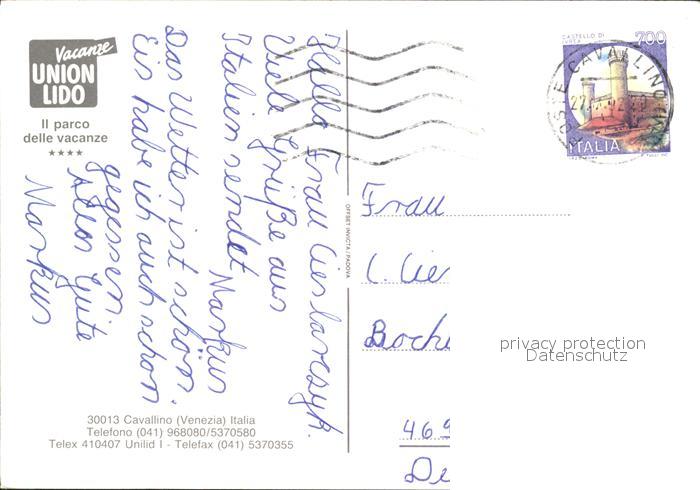 Vacanze
UNION
LIDO
Il parco
delle vacanze
Hallo Frau
Viele Grüße aus
Italien sendet Markus
Das Wetter ist schön.
Eis habe ich auch schon
gegessen
Alles Gute
Markus
30013 Cavallino (Venezia) Italia
Telefono (041) 968080/5370580
Telex 410407 Unilid I - Telefax (041) 5370355
OFFSET INVICTA/PADOVA
CASTELLO DI
IVREA
700
ITALIA
POSTE CAVALLINO
Frau
privacy protection
Datenschutz
469
De